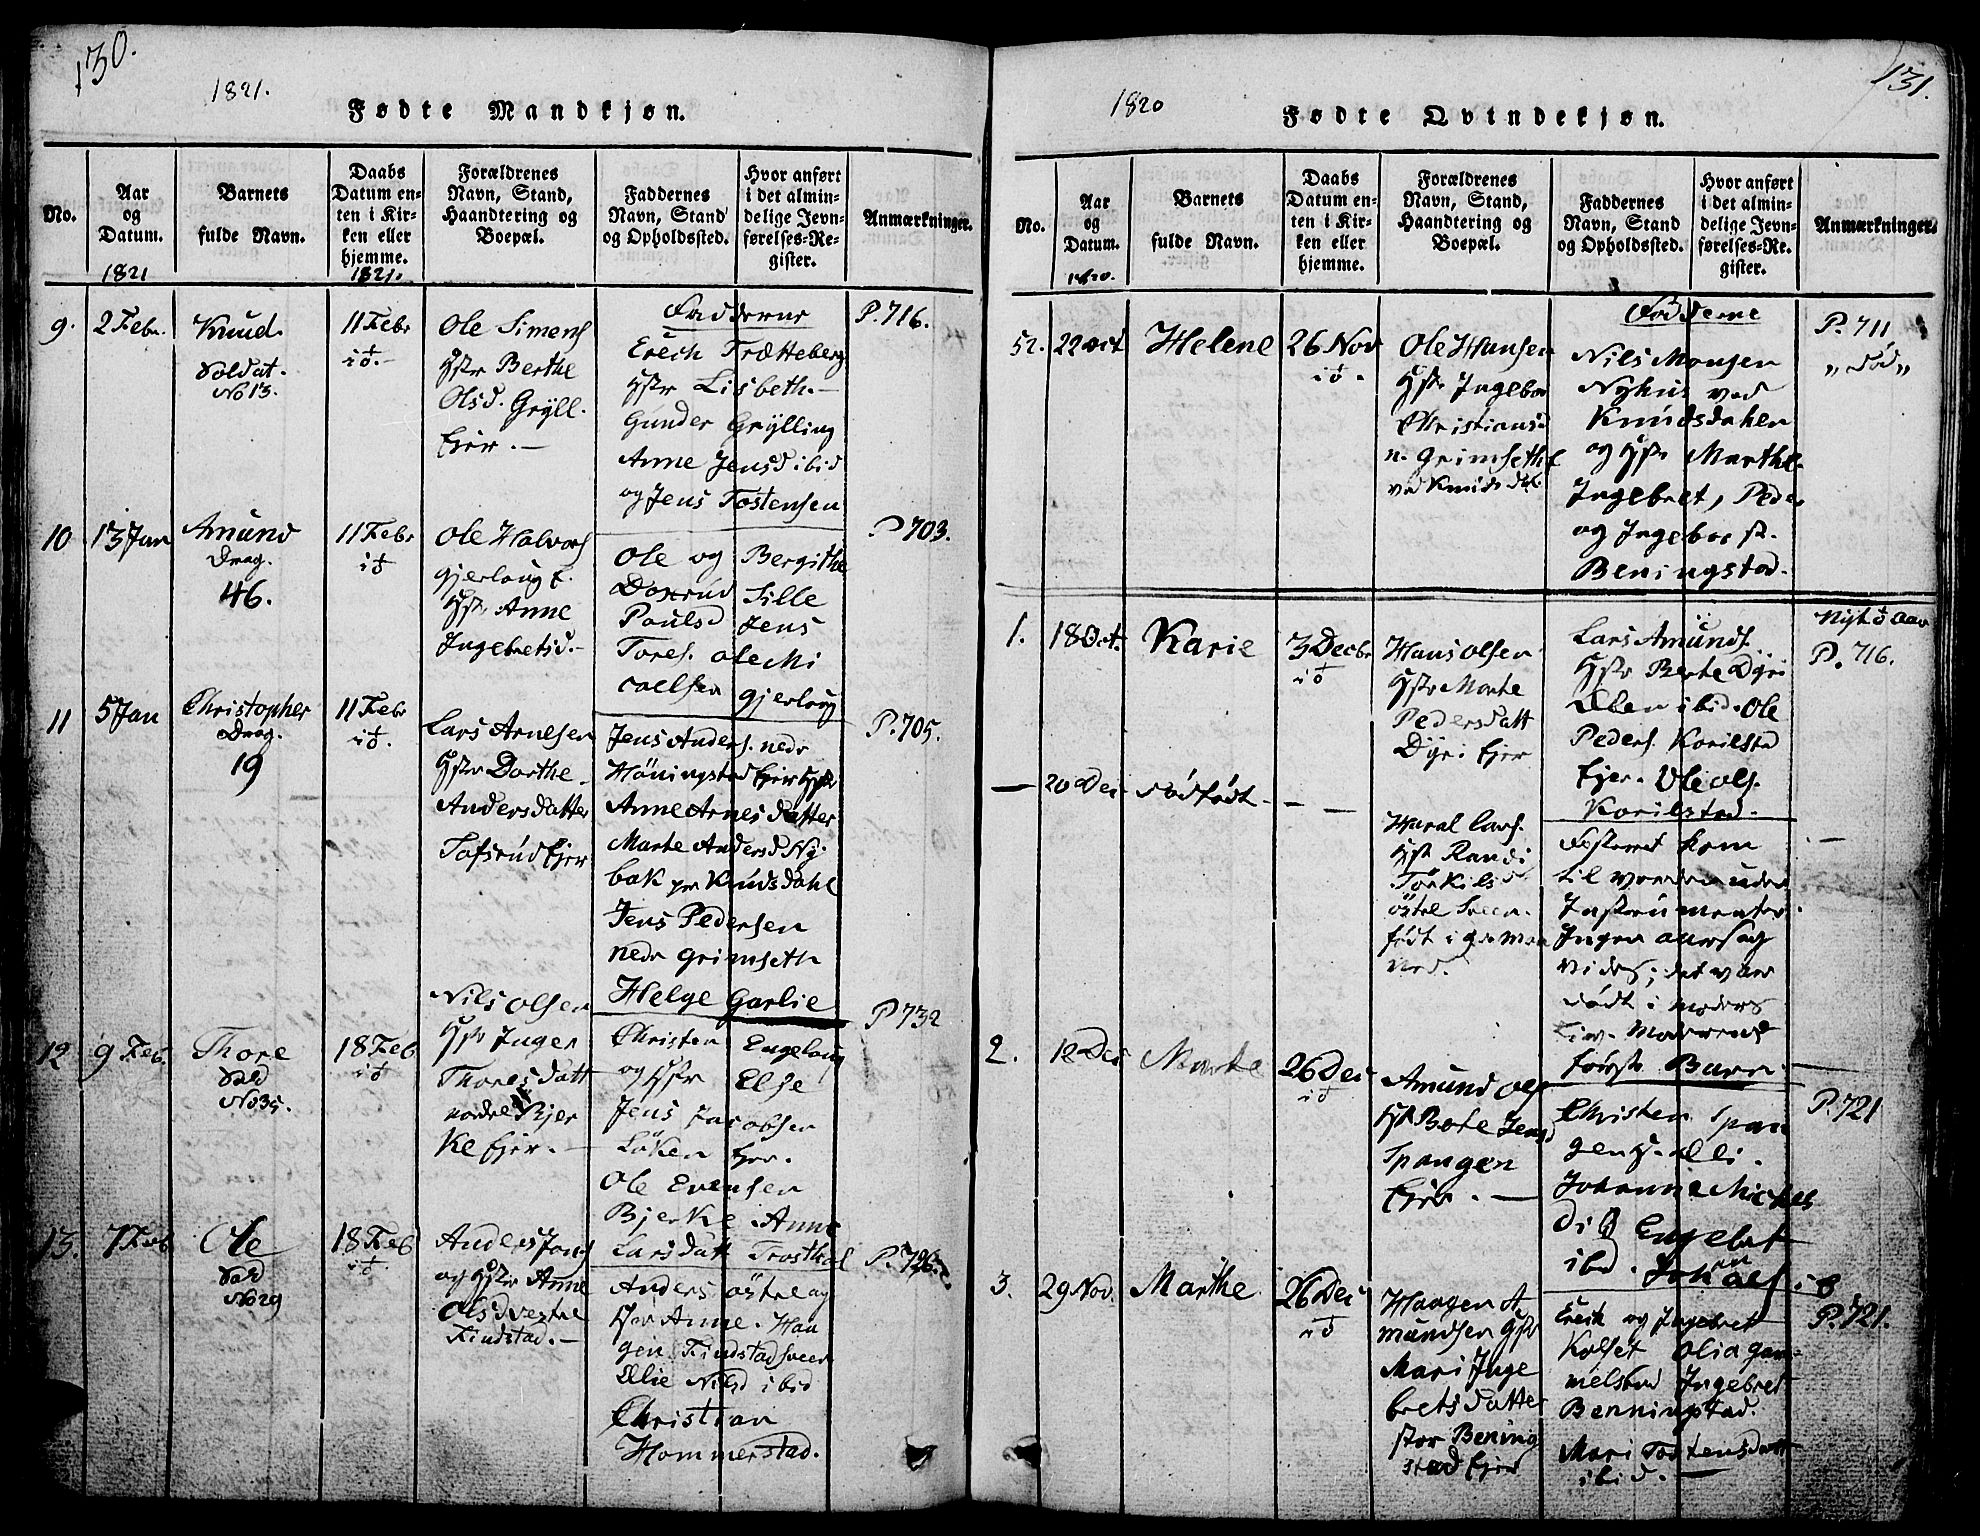 130.
1821.
Fødte Mandkjøn.
No.
Aar
og
Datum.
1821
Barnets
fulde Navn.
Daabs
Datum en-
ten i Kir-
ken eller
hjemme.
1821.
Forældrenes
Navn, Stand,
Haandtering og
Boepæl.
Faddernes
Navn, Stand
og Opholdssted.
Hvor anført
i det almin-
delige Jevn-
førelses-Re-
gister.
Anmærkninger.
9. 2 Febr.
Knud
Soldat.
No 13.
11 Febr
Ole Simens
Hstr Berthe
Olsd. Grÿll.
Ejer. —
Fadderne
Erich Trætteberg
Hstr Lisbeth. —
Gunder Grÿlling
Anne Jensd ibid
og Jens Tostensen
P. 716.
10 13 Jan
Amund
Drag.
46.
11 Febr
Ole Halvors
Gjerloug E.
Hstr Anne
Ingebretsd. —
Ole og Bergithe
Doxrud Sille
Poulsd Jens
Tores. Ole Mi
caelsen Gjerloug
P. 703.
11 5 Jan
Christopher
Drag.
19
11 Febr
Lars Arnesen
Hstr Dorthe
Andersdatter
Tofsrud Ejer
Jens Anders. nedr
Höningstad Ejer Hstr
Anne Arnesdatter
Marte Andersd Ny-
bak Knudsdahl
Jens Pedersen
nedr Grimseth
Helge Garlie
P. 705.
12 9 Feb.
Thore
Sold
No 35.
18 Feb
Nils Olsen
Hstr Inger
Thoresdatt
nordre Bjer
ke Ejer. —
Christen Engeloug
og Hstr Else
Jens Jacobsen
Löken Ejer.
Ole Evensen
Bjerke Anne
Larsdatt Trosthol
P 732
13. 7 Feb
Ole
Sold
No 29
18 Feb
Anders Jons
og Hstr Anne
Olsd vestre
Findstad. —
Anders östre og
Hstr Anne. Haa
gen Findstadsveen
Ælie Nilsd ibid
Christian
Hommerstad.
P. 726.
131.
1820
Fødte Qvindekjøn.
No.
Aar
og
Datum.
1820.
Barnets
fulde Navn.
Daabs
Datum en-
ten i Kir-
ken eller
hjemme.
Forældrenes
Navn, Stand,
Haandtering og
Boepæl.
Faddernes
Navn, Stand
og Opholdssted.
Hvor anført
i det almin-
delige Jevn-
førelses-Re-
gister.
Anmærkninger.
52. 22 Oct
Helene
26 Nov
Ole Hansen
Hstr Ingebor
Christiansd
n. Grimseth E
ved Knudsdal
Fadderne
Nils Monsen
Nyhus ved
Knudsdalen
og Hstr Marthe
Ingebret, Peder
og Ingebor st.
Beningstad.
P. 711
„Död„
1. 18 Oct.
Karie
3 Decbr
Hans Olsen
Hstr Marte
Pedersdatt
Dÿri Ejer
Lars Amunds.
Hstr Berte Dÿri
Ælen ibid. Ole
Peders. Korilstad
Ejer. Ole Ols.
Korilstad.
Nyt Aar
P. 716.
— 20 Dec
Dödfödt —
— —
Haral Lars.
Hstr Randi
Törkilsd
östre Sveen.
födt i 9de Maa
ned.
Fosteret kom
til verden uden
Instrumenter.
Ingen aarsag
vides; det var
död i moders
Liv. Moderens
förste Barn. —
—
2. 12 Dec
Marte
26 Dec
Amund Ols
Hstr Berte Jensd
Spangen
Ejer. —
Christen Span
gen H. Eli.
Johanne Mickels
Engebet
ibd. Johan Ols
P. 721
3. 29 Nov.
Marthe
26 Dec
Haagen A
mundsen Hstr
Mari Inge
bretsdatter
stor Bening
stad Ejer
Erich og Ingebret
Kolset Olia Gam-
melstad Ingebret
Benningstad.
Mari Tostensdatt
ibid. —
P. 721.